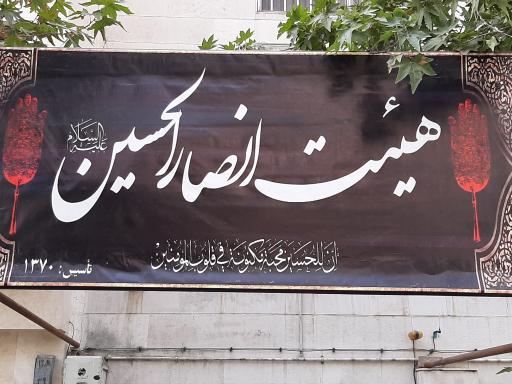 هیئت انصار الحسین
علیه السلام
ان للحسین محبة مکنونة فی قلوب المومنین
تأسیس: ۱۳۷۰